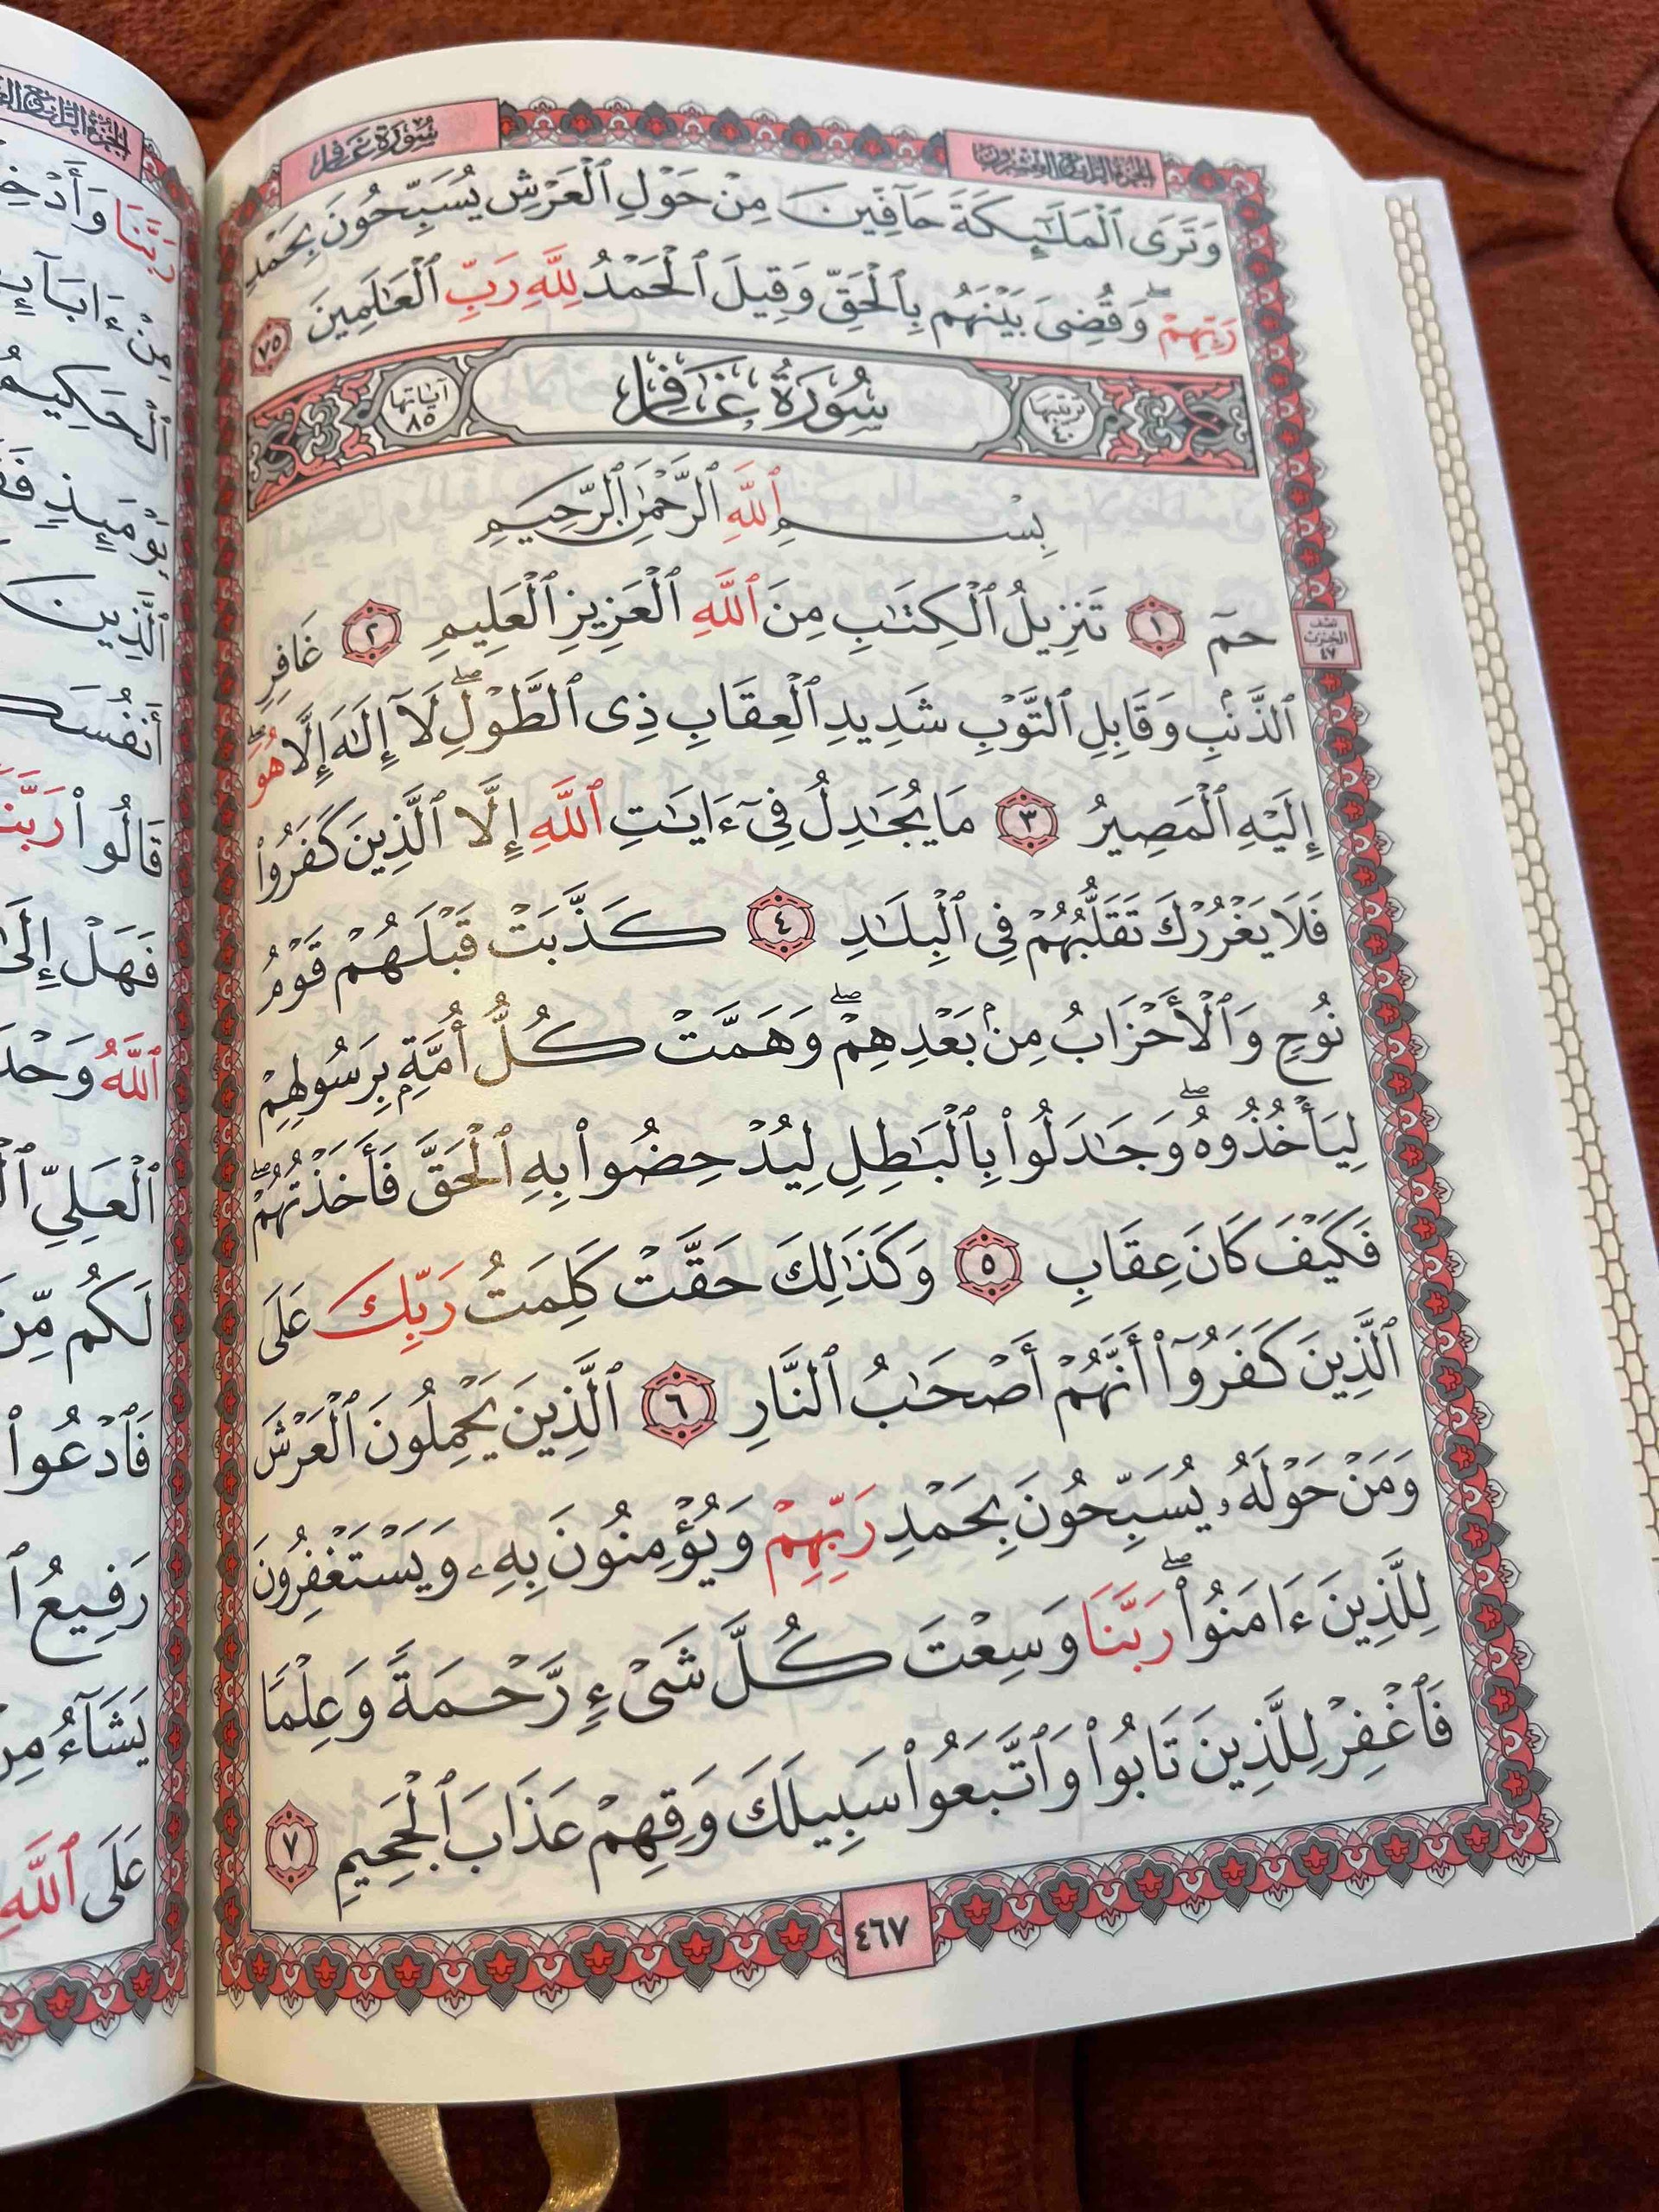 الجزء الرابع والعشرون
سورة غافر
وَتَرَى ٱلْمَلَٰٓئِكَةَ حَآفِّينَ مِنْ حَوْلِ ٱلْعَرْشِ يُسَبِّحُونَ بِحَمْدِ
رَبِّهِمْ ۖ وَقُضِىَ بَيْنَهُم بِٱلْحَقِّ وَقِيلَ ٱلْحَمْدُ لِلَّهِ رَبِّ ٱلْعَٰلَمِينَ ٧٥
ترتيبها ٤٠
سُورَةُ غَافِرٍ
آياتها ٨٥
بِسْمِ ٱللَّهِ ٱلرَّحْمَٰنِ ٱلرَّحِيمِ
حمٓ ١ تَنزِيلُ ٱلْكِتَٰبِ مِنَ ٱللَّهِ ٱلْعَزِيزِ ٱلْعَلِيمِ ٢ غَافِرِ
نصف الحزب ٤٧
ٱلذَّنۢبِ وَقَابِلِ ٱلتَّوْبِ شَدِيدِ ٱلْعِقَابِ ذِى ٱلطَّوْلِ ۖ لَآ إِلَٰهَ إِلَّا هُوَ ۖ
إِلَيْهِ ٱلْمَصِيرُ ٣ مَا يُجَٰدِلُ فِىٓ ءَايَٰتِ ٱللَّهِ إِلَّا ٱلَّذِينَ كَفَرُوا۟
فَلَا يَغْرُرْكَ تَقَلُّبُهُمْ فِى ٱلْبِلَٰدِ ٤ كَذَّبَتْ قَبْلَهُمْ قَوْمُ
نُوحٍ وَٱلْأَحْزَابُ مِنۢ بَعْدِهِمْ ۖ وَهَمَّتْ كُلُّ أُمَّةٍۭ بِرَسُولِهِمْ
لِيَأْخُذُوهُ ۖ وَجَٰدَلُوا۟ بِٱلْبَٰطِلِ لِيُدْحِضُوا۟ بِهِ ٱلْحَقَّ فَأَخَذْتُهُمْ ۖ
فَكَيْفَ كَانَ عِقَابِ ٥ وَكَذَٰلِكَ حَقَّتْ كَلِمَتُ رَبِّكَ عَلَى
ٱلَّذِينَ كَفَرُوٓا۟ أَنَّهُمْ أَصْحَٰبُ ٱلنَّارِ ٦ ٱلَّذِينَ يَحْمِلُونَ ٱلْعَرْشَ
وَمَنْ حَوْلَهُۥ يُسَبِّحُونَ بِحَمْدِ رَبِّهِمْ وَيُؤْمِنُونَ بِهِۦ وَيَسْتَغْفِرُونَ
لِلَّذِينَ ءَامَنُوا۟ ۖ رَبَّنَا وَسِعْتَ كُلَّ شَىْءٍ رَّحْمَةً وَعِلْمًا
فَٱغْفِرْ لِلَّذِينَ تَابُوا۟ وَٱتَّبَعُوا۟ سَبِيلَكَ وَقِهِمْ عَذَابَ ٱلْجَحِيمِ ٧
٤٦٧
رَبَّنَا وَأَدْخِ
مِنْ ءَابَآئِ
ٱلْحَكِيمُ
يَوْمَئِذٍ فَقَ
ٱلَّذِينَ
أَنفُسَكُ
قَالُوا۟ رَبَّنَ
فَهَلْ إِلَىٰ
ٱللَّهُ وَحْدَ
ٱلْعَلِىِّ ٱلْ
لَكُم مِّنَ
فَٱدْعُوا۟
رَفِيعُ ٱ
يَشَآءُ مِنْ
عَلَى ٱللَّهِ